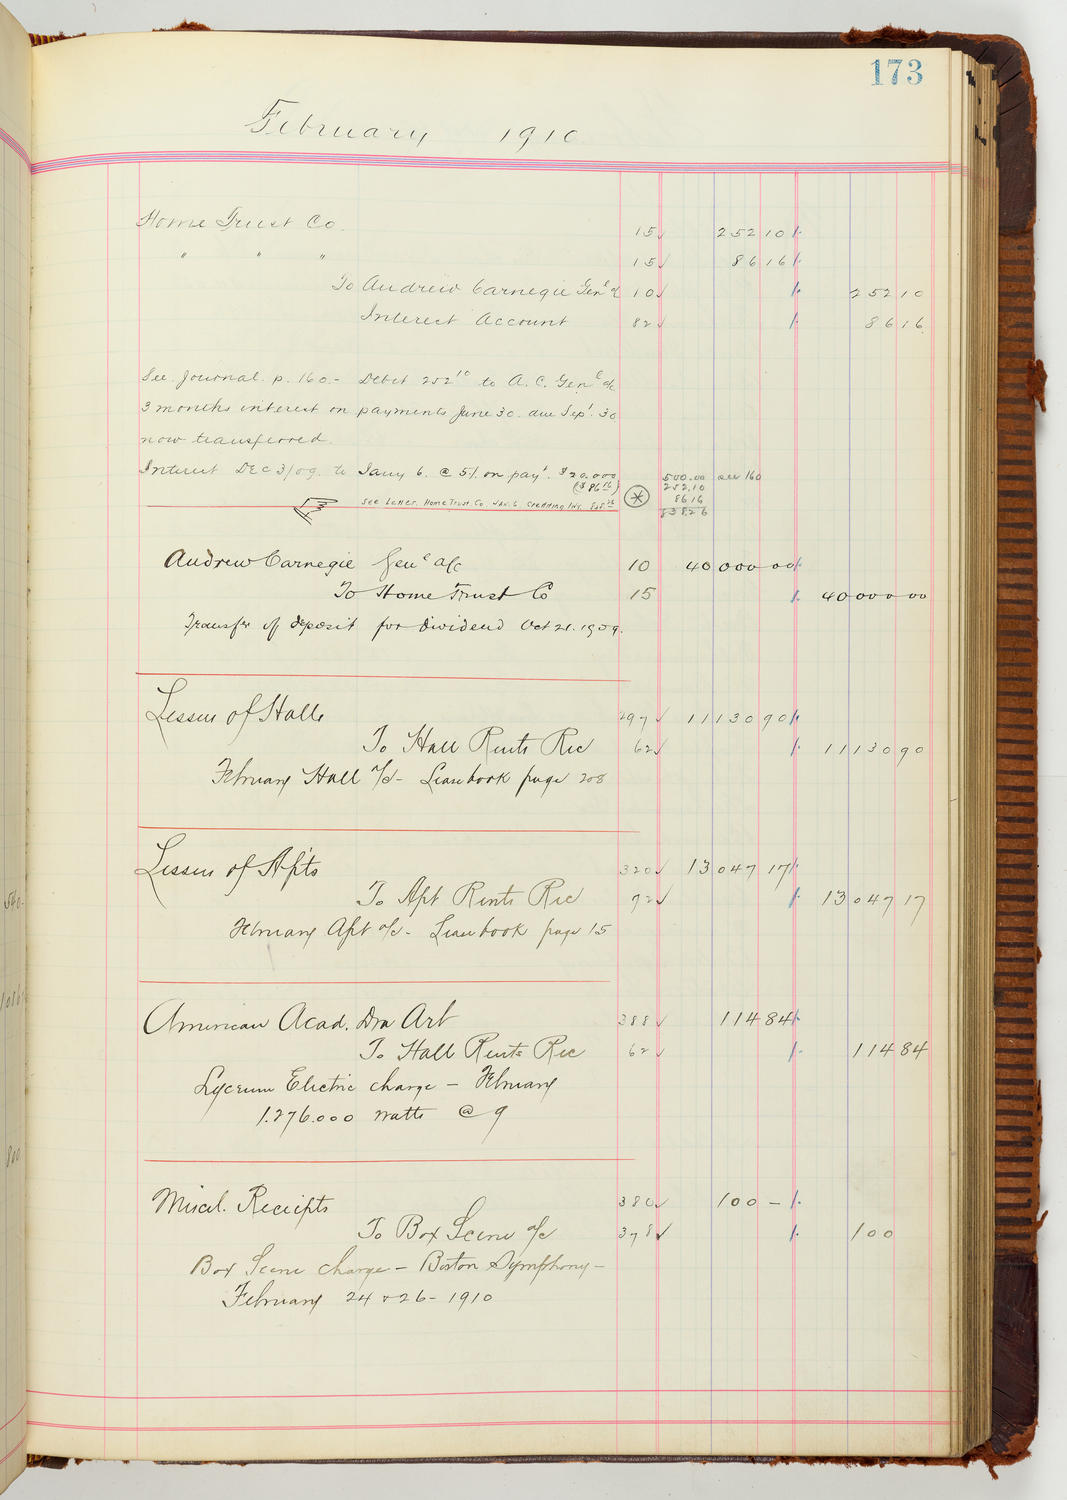 173
February 1910
Home Trust Co. 15 252 10
" " " 15 86 16
To Andrew Carnegie Gen'l a/c 10 252 10
Interest Account 82 86 16
See Journal p. 160 - Debit 252 10 to A. C. Gen'l a/c
3 months interest on payments June 30. due Sept. 30
now transferred.
Interest Dec 31/09. to Jany 6. @ 5% on pay't $20.000
($86 16)
500.00 see 160
252.10
86 16
838 26
See Letter. Home Trust Co. Jan. 6. Crediting Int. 838.26
Andrew Carnegie Gen'l a/c 10 40 000 00
To Home Trust Co 15 40 000 00
Transfer of deposit for dividend Oct 21. 1909.
Lessees of Halls 297 11 130 90
To Hall Rents Rec 62 11 130 90
February Hall a/c - Lease book page 208
Lessees of Apts 320 13 047 17
To Apt Rents Rec 72 13 047 17
February Apt a/c - Lease book page 15
American Acad. Dra Art 388 114 84
To Hall Rents Rec 62 114 84
Lyceum Electric charge - February
1.276.000 watts @ 9
Miscl. Receipts 380 100 -
To Box Scene a/c 378 100
Box Scene charge - Boston Symphony -
February 24 + 26 - 1910